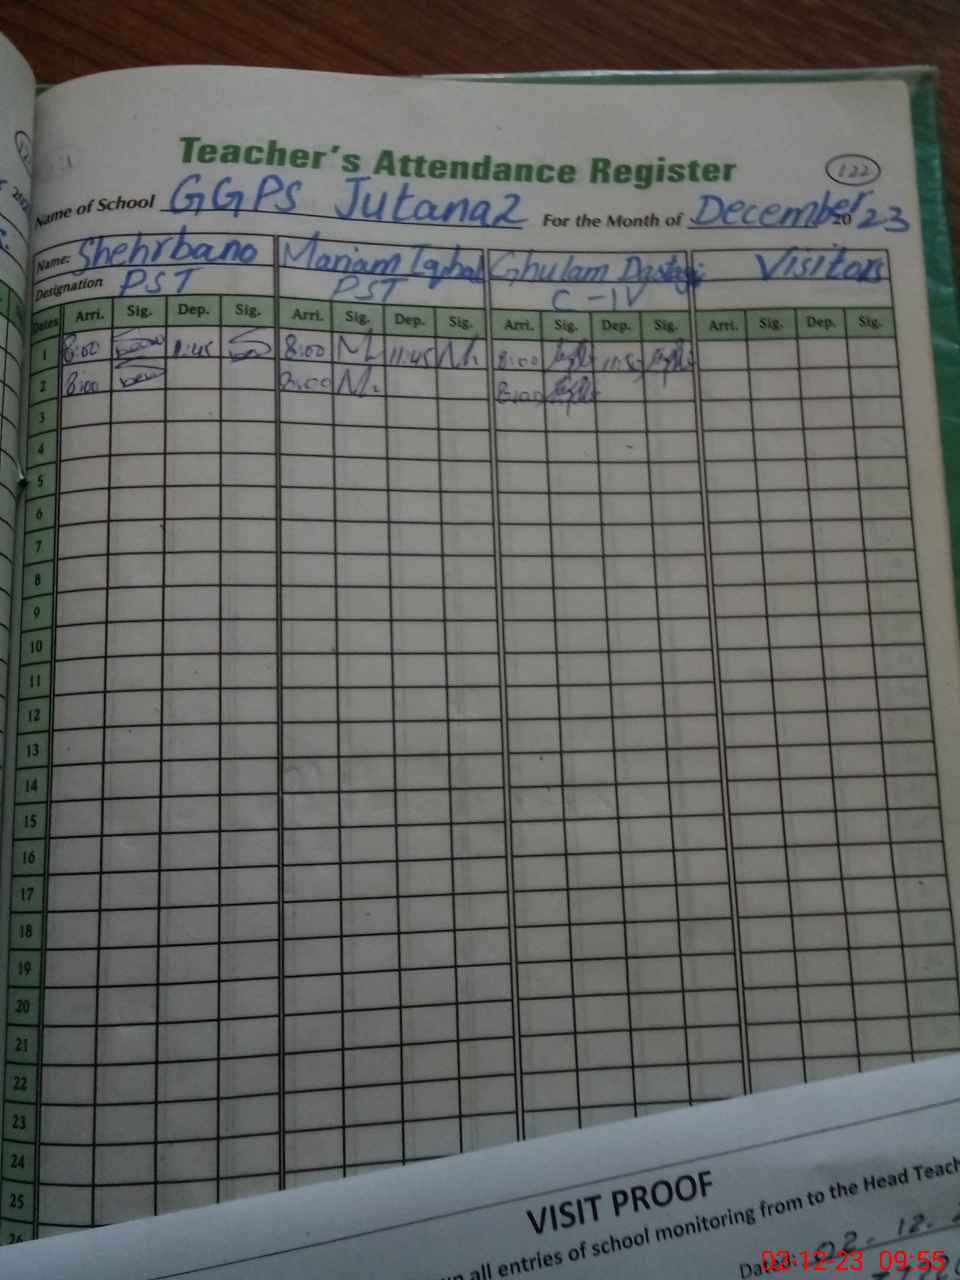 Teacher's Attendance Register
122
Name of School GGPS Jutana2 For the Month of December 2023
Name: Shehrbano Mariam Iqbal Ghulam Dastagir Visitors
Designation PST PST C-IV
Dates Arri. Sig. Dep. Sig. Arri. Sig. Dep. Sig. Arri. Sig. Dep. Sig. Arri. Sig. Dep. Sig.
1 8:00 11:45 8:00 11:45 8:00
2 8:00 8:00 8:00
3
4
5
6
7
8
9
10
11
12
13
14
15
16
17
18
19
20
21
22
23
24
25
26
VISIT PROOF
all entries of school monitoring from to the Head Teach
Dated: 02-12-
02-12-23 09:55